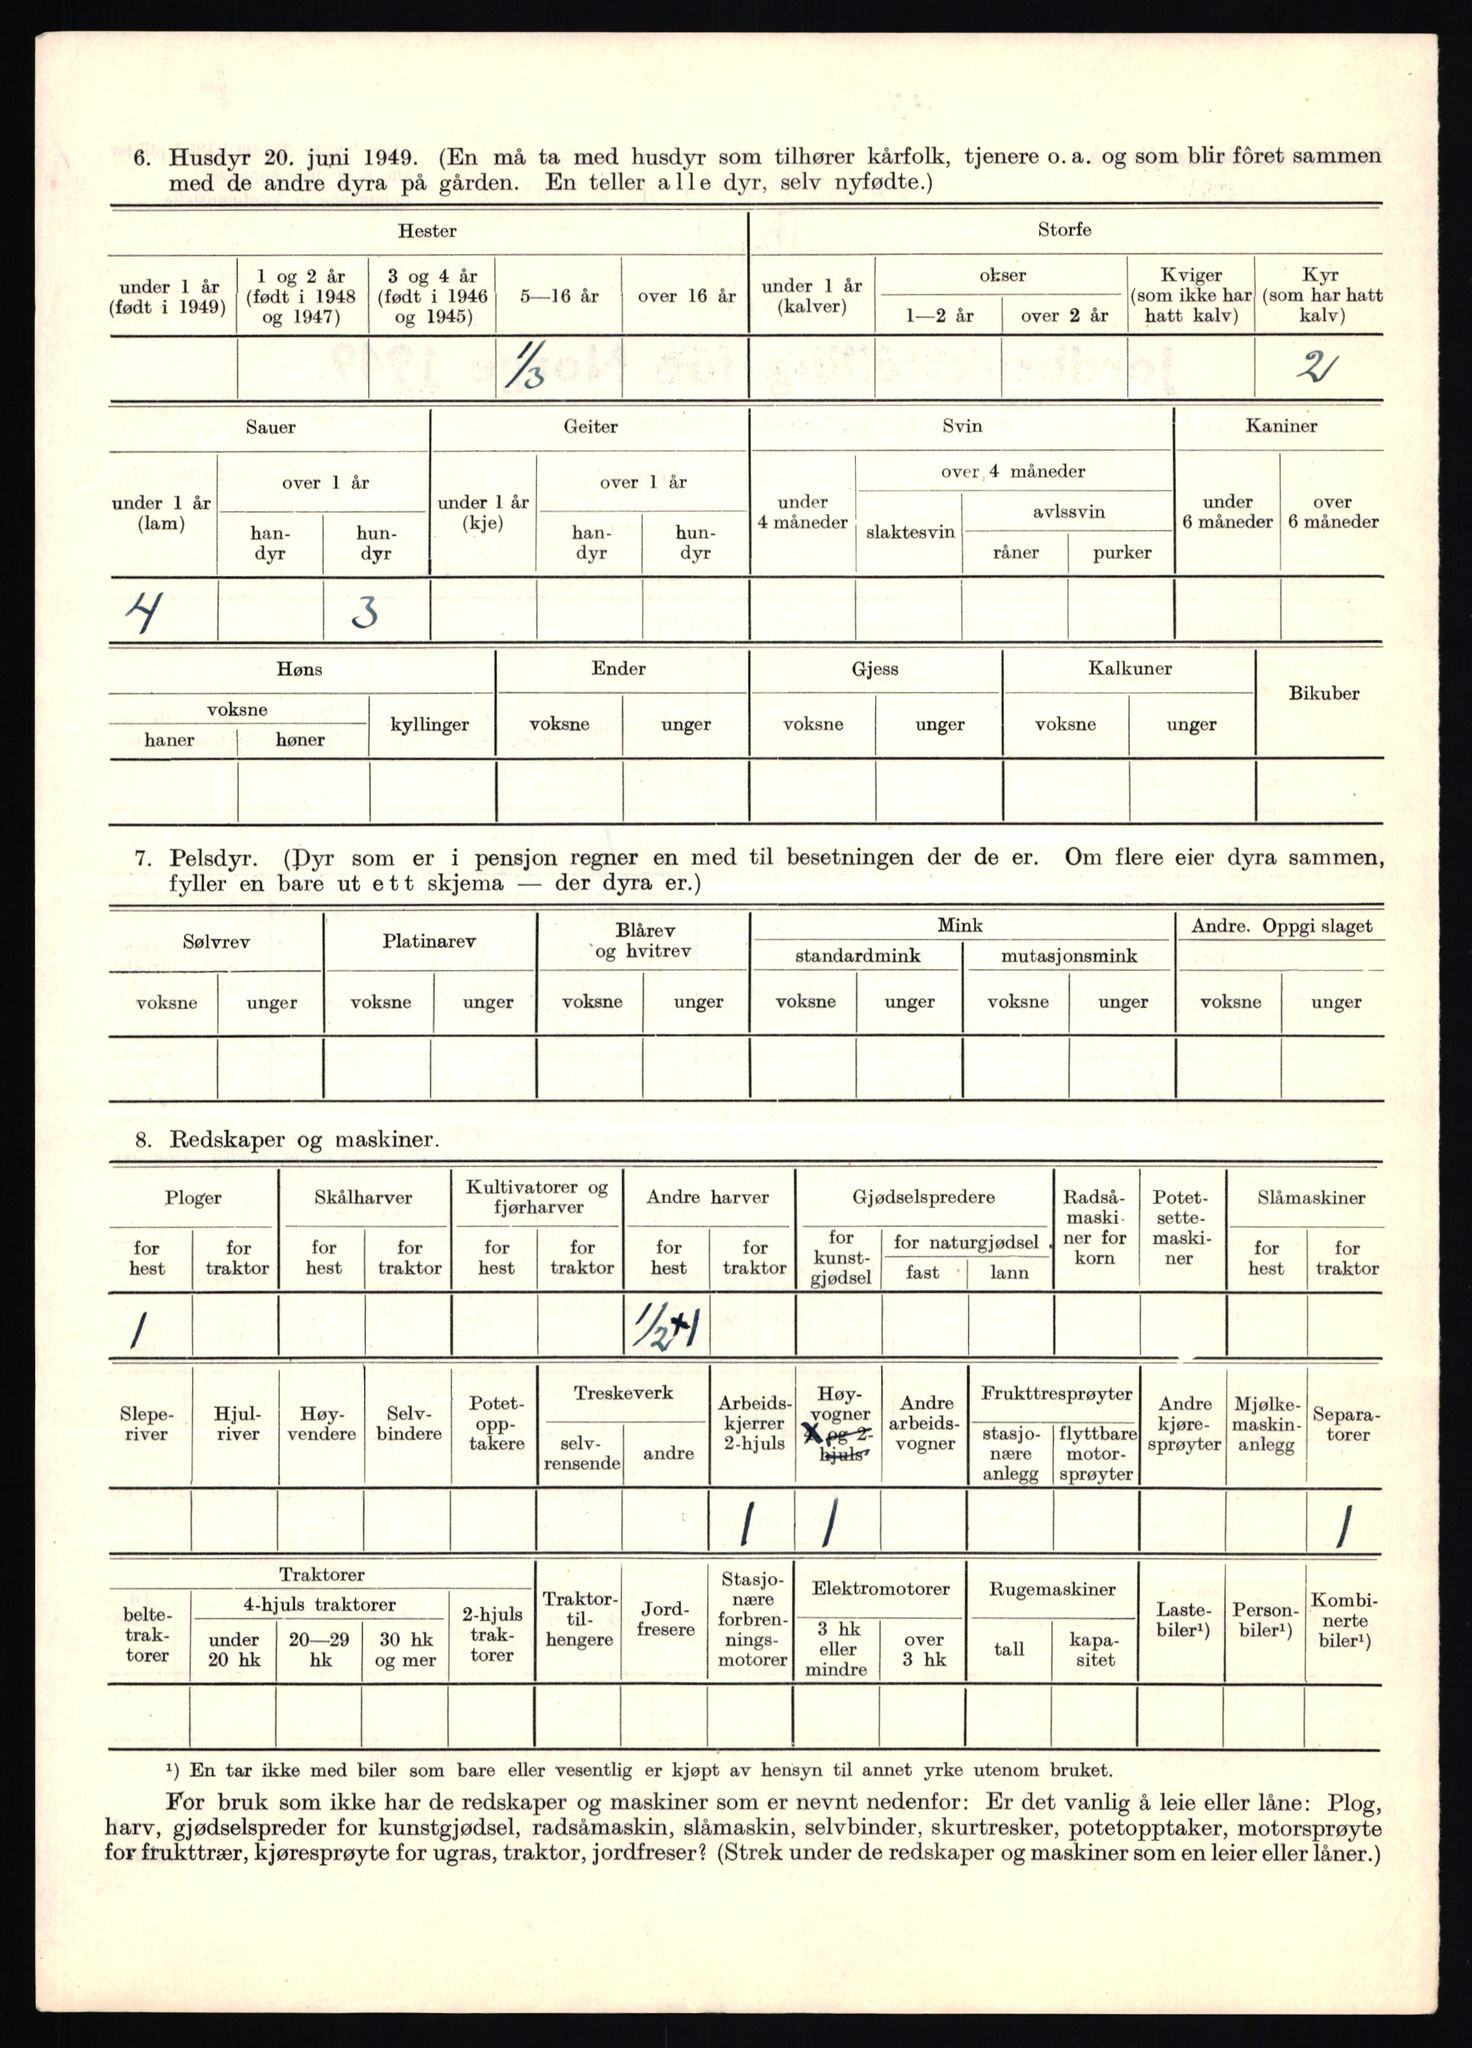 6. Husdyr 20. juni 1949. (En må ta med husdyr som tilhører kårfolk, tjenere o. a. og som blir fôret sammen
med de andre dyra på gården. En teller alle dyr, selv nyfødte.)
Hester Storfe
under 1 år (født i 1949) 1 og 2 år (født i 1948 og 1947) 3 og 4 år (født i 1946 og 1945) 5—16 år over 16 år under 1 år (kalver) okser 1—2 år over 2 år Kviger (som ikke har hatt kalv) Kyr (som har hatt kalv)
1/3 2
Sauer Geiter Svin Kaniner
under 1 år (lam) over 1 år han-dyr hun-dyr under 1 år (kje) over 1 år han-dyr hun-dyr under 4 måneder over 4 måneder slaktesvin avlssvin råner purker under 6 måneder over 6 måneder
4 3
Høns Ender Gjess Kalkuner Bikuber
voksne haner høner kyllinger voksne unger voksne unger voksne unger
7. Pelsdyr. (Dyr som er i pensjon regner en med til besetningen der de er. Om flere eier dyra sammen,
fyller en bare ut ett skjema — der dyra er.)
Sølvrev Platinarev Blårev og hvitrev Mink Andre. Oppgi slaget
standardmink mutasjonsmink
voksne unger voksne unger voksne unger voksne unger voksne unger voksne unger
8. Redskaper og maskiner.
Ploger Skålharver Kultivatorer og fjørharver Andre harver Gjødselspredere Radså-maski-ner for korn Potet-sette-maski-ner Slåmaskiner
for hest for traktor for hest for traktor for hest for traktor for hest for traktor for kunst-gjødsel for naturgjødsel fast lann for hest for traktor
1 1/2+1
Slepe-river Hjul-river Høy-vendere Selv-bindere Potet-opp-takere Treskeverk selv-rensende andre Arbeids-kjerrer 2-hjuls Høy-vogner X og 2-hjuls Andre arbeids-vogner Frukttresprøyter stasjo-nære anlegg flyttbare motor-sprøyter Andre kjøre-sprøyter Mjølke-maskin-anlegg Separa-torer
1 1 1
Traktorer Traktor-til-hengere Jord-fresere Stasjo-nære forbren-nings-motorer Elektromotorer Rugemaskiner Laste-biler¹) Person-biler¹) Kombi-nerte biler¹)
belte-trak-torer 4-hjuls traktorer under 20 hk 20—29 hk 30 hk og mer 2-hjuls trak-torer 3 hk eller mindre over 3 hk tall kapa-sitet
¹) En tar ikke med biler som bare eller vesentlig er kjøpt av hensyn til annet yrke utenom bruket.
For bruk som ikke har de redskaper og maskiner som er nevnt nedenfor: Er det vanlig å leie eller låne: Plog,
harv, gjødselspreder for kunstgjødsel, radsåmaskin, slåmaskin, selvbinder, skurtresker, potetopptaker, motorsprøyte
for frukttrær, kjøresprøyte for ugras, traktor, jordfreser? (Strek under de redskaper og maskiner som en leier eller låner.)